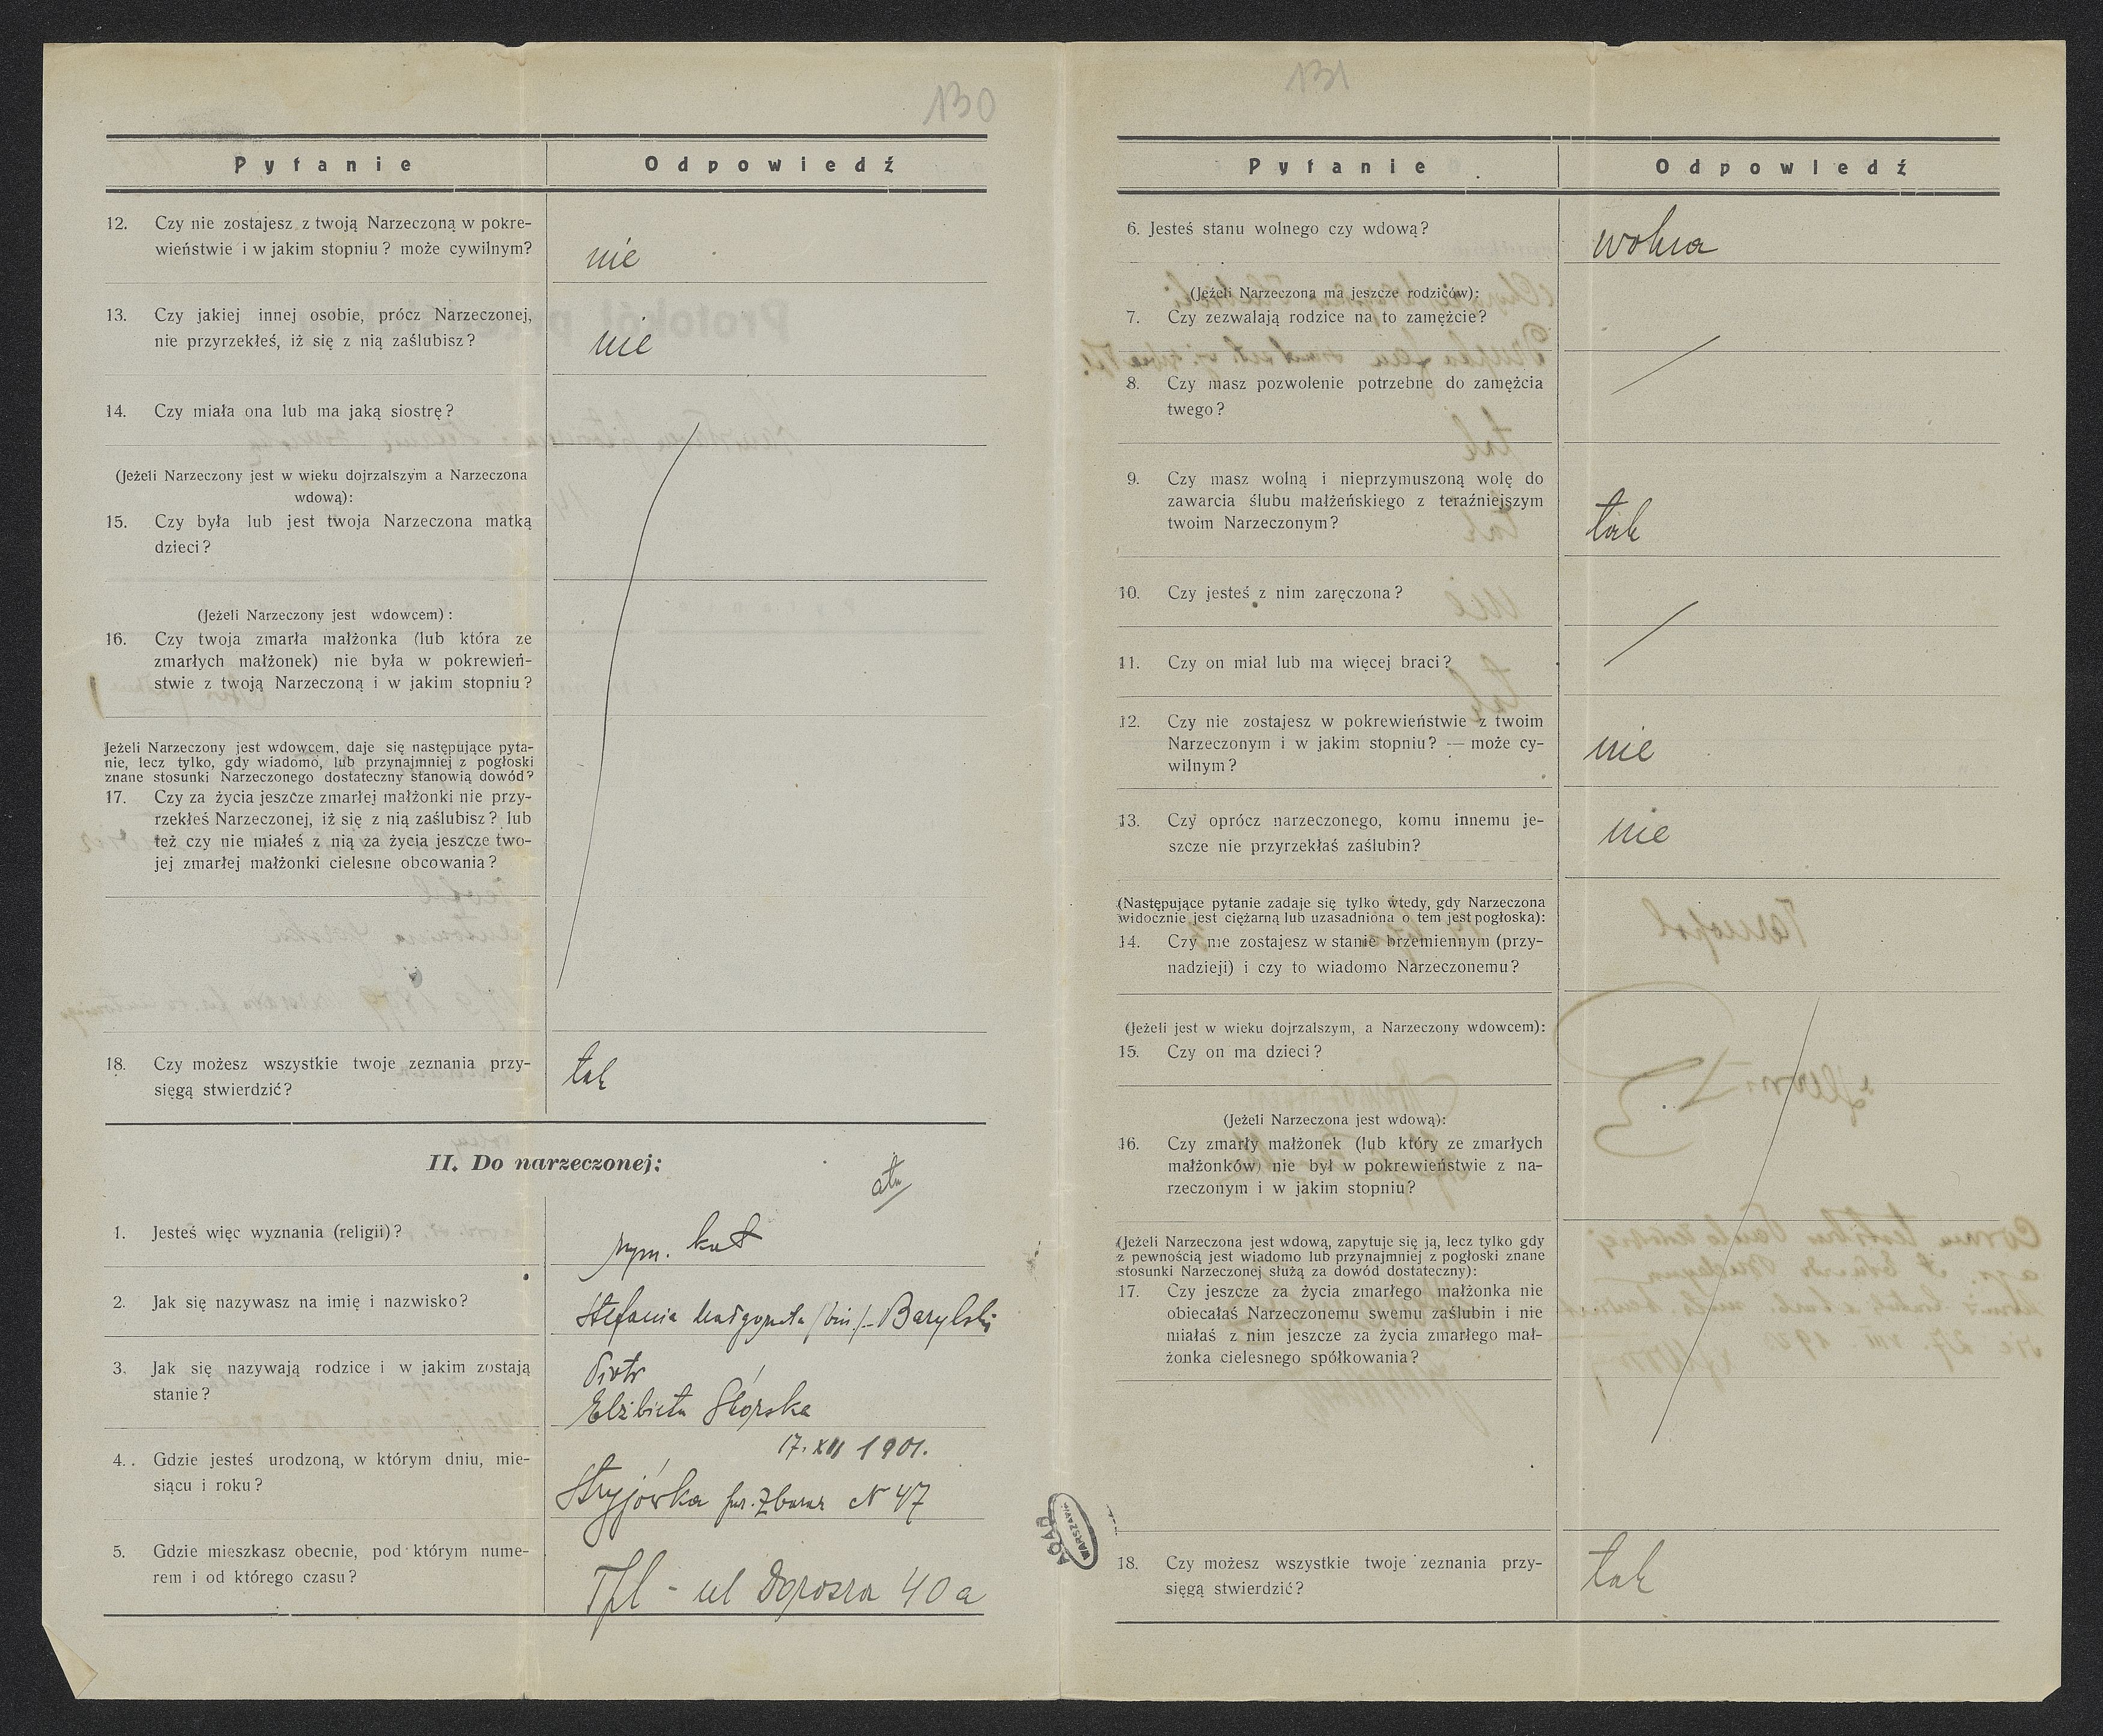 130
Pytanie Odpowiedź
12. Czy nie zostajesz z twoją Narzeczoną w pokre-
wieństwie i w jakim stopniu? może cywilnym?
nie
13. Czy jakiej innej osobie, prócz Narzeczonej,
nie przyrzekłeś, iż się z nią zaślubisz?
nie
14. Czy miała ona lub ma jaką siostrę?
(Jeżeli Narzeczony jest w wieku dojrzalszym a Narzeczona
wdową):
15. Czy była lub jest twoja Narzeczona matką
dzieci?
(Jeżeli Narzeczony jest wdowcem):
16. Czy twoja zmarła małżonka (lub która ze
zmarłych małżonek) nie była w pokrewień-
stwie z twoją Narzeczoną i w jakim stopniu?
Jeżeli Narzeczony jest wdowcem, daje się następujące pyta-
nie, lecz tylko, gdy wiadomo, lub przynajmniej z pogłoski
znane stosunki Narzeczonego dostateczny stanowią dowód?
17. Czy za życia jeszcze zmarłej małżonki nie przy-
rzekłeś Narzeczonej, iż się z nią zaślubisz? lub
też czy nie miałeś z nią za życia jeszcze two-
jej zmarłej małżonki cielesne obcowania?
18. Czy możesz wszystkie twoje zeznania przy-
sięgą stwierdzić?
tak
II. Do narzeczonej:
1. Jesteś więc wyznania (religii)?
rzym. kat
2. Jak się nazywasz na imię i nazwisko?
Stefania Małgorzata /bin./ Barylski
3. Jak się nazywają rodzice i w jakim zostają
stanie?
Piotr
Elżbieta Górska
4. Gdzie jesteś urodzoną, w którym dniu, mie-
siącu i roku?
17. XII 1901.
Stryjówka pw. Zbaraż N 47
5. Gdzie mieszkasz obecnie, pod którym nume-
rem i od którego czasu?
Tpl - ul 40 a
131
Pytanie Odpowiedź
6. Jesteś stanu wolnego czy wdową?
wolna
(Jeżeli Narzeczona ma jeszcze rodziców):
7. Czy zezwalają rodzice na to zamęźcie?
8. Czy masz pozwolenie potrzebne do zamężcia
twego?
9. Czy masz wolną i nieprzymuszoną wolę do
zawarcia ślubu małżeńskiego z teraźniejszym
twoim Narzeczonym?
tak
10. Czy jesteś z nim zaręczona?
11. Czy on miał lub ma więcej braci?
12. Czy nie zostajesz w pokrewieństwie z twoim
Narzeczonym i w jakim stopniu? — może cy-
wilnym?
nie
13. Czy oprócz narzeczonego, komu innemu je-
szcze nie przyrzekłaś zaślubin?
nie
(Następujące pytanie zadaje się tylko wtedy, gdy Narzeczona
widocznie jest ciężarną lub uzasadniona o tem jest pogłoska):
14. Czy nie zostajesz w stanie brzemiennym (przy-
nadzieji) i czy to wiadomo Narzeczonemu?
(Jeżeli jest w wieku dojrzalszym, a Narzeczony wdowcem):
15. Czy on ma dzieci?
(Jeżeli Narzeczona jest wdową):
16. Czy zmarły małżonek (lub który ze zmarłych
małżonków) nie był w pokrewieństwie z na-
rzeczonym i w jakim stopniu?
(Jeżeli Narzeczona jest wdową, zapytuje się ją, lecz tylko gdy
z pewnością jest wiadomo lub przynajmniej z pogłoski znane
stosunki Narzeczonej służą za dowód dostateczny):
17. Czy jeszcze za życia zmarłego małżonka nie
obiecałaś Narzeczonemu swemu zaślubin i nie
miałaś z nim jeszcze za życia zmarłego mał-
żonka cielesnego spółkowania?
18. Czy możesz wszystkie twoje zeznania przy-
sięgą stwierdzić?
tak
AGAD
WARSZAWA